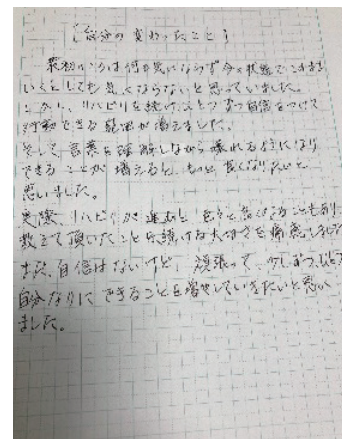 ［自分の変わったこと］
最初のころは何も気にならず今の状態でこのまま
いくとしても良くならないと思っていました。
しかし、リハビリを続け、少しずつ自信をつけて
行動できる範囲が増えました。
そして、言葉を理解しながら喋れるようになり
できることが増えると、もっと良くなりたいと
思いました。
実際リハビリが進むと色々と良くなることもあり
教えて頂いたことを続ける大切さを痛感しました
まだ、自信はないけど、頑張って、少しずつ
自分なりにできることを増やしていきたいと思い
ました。